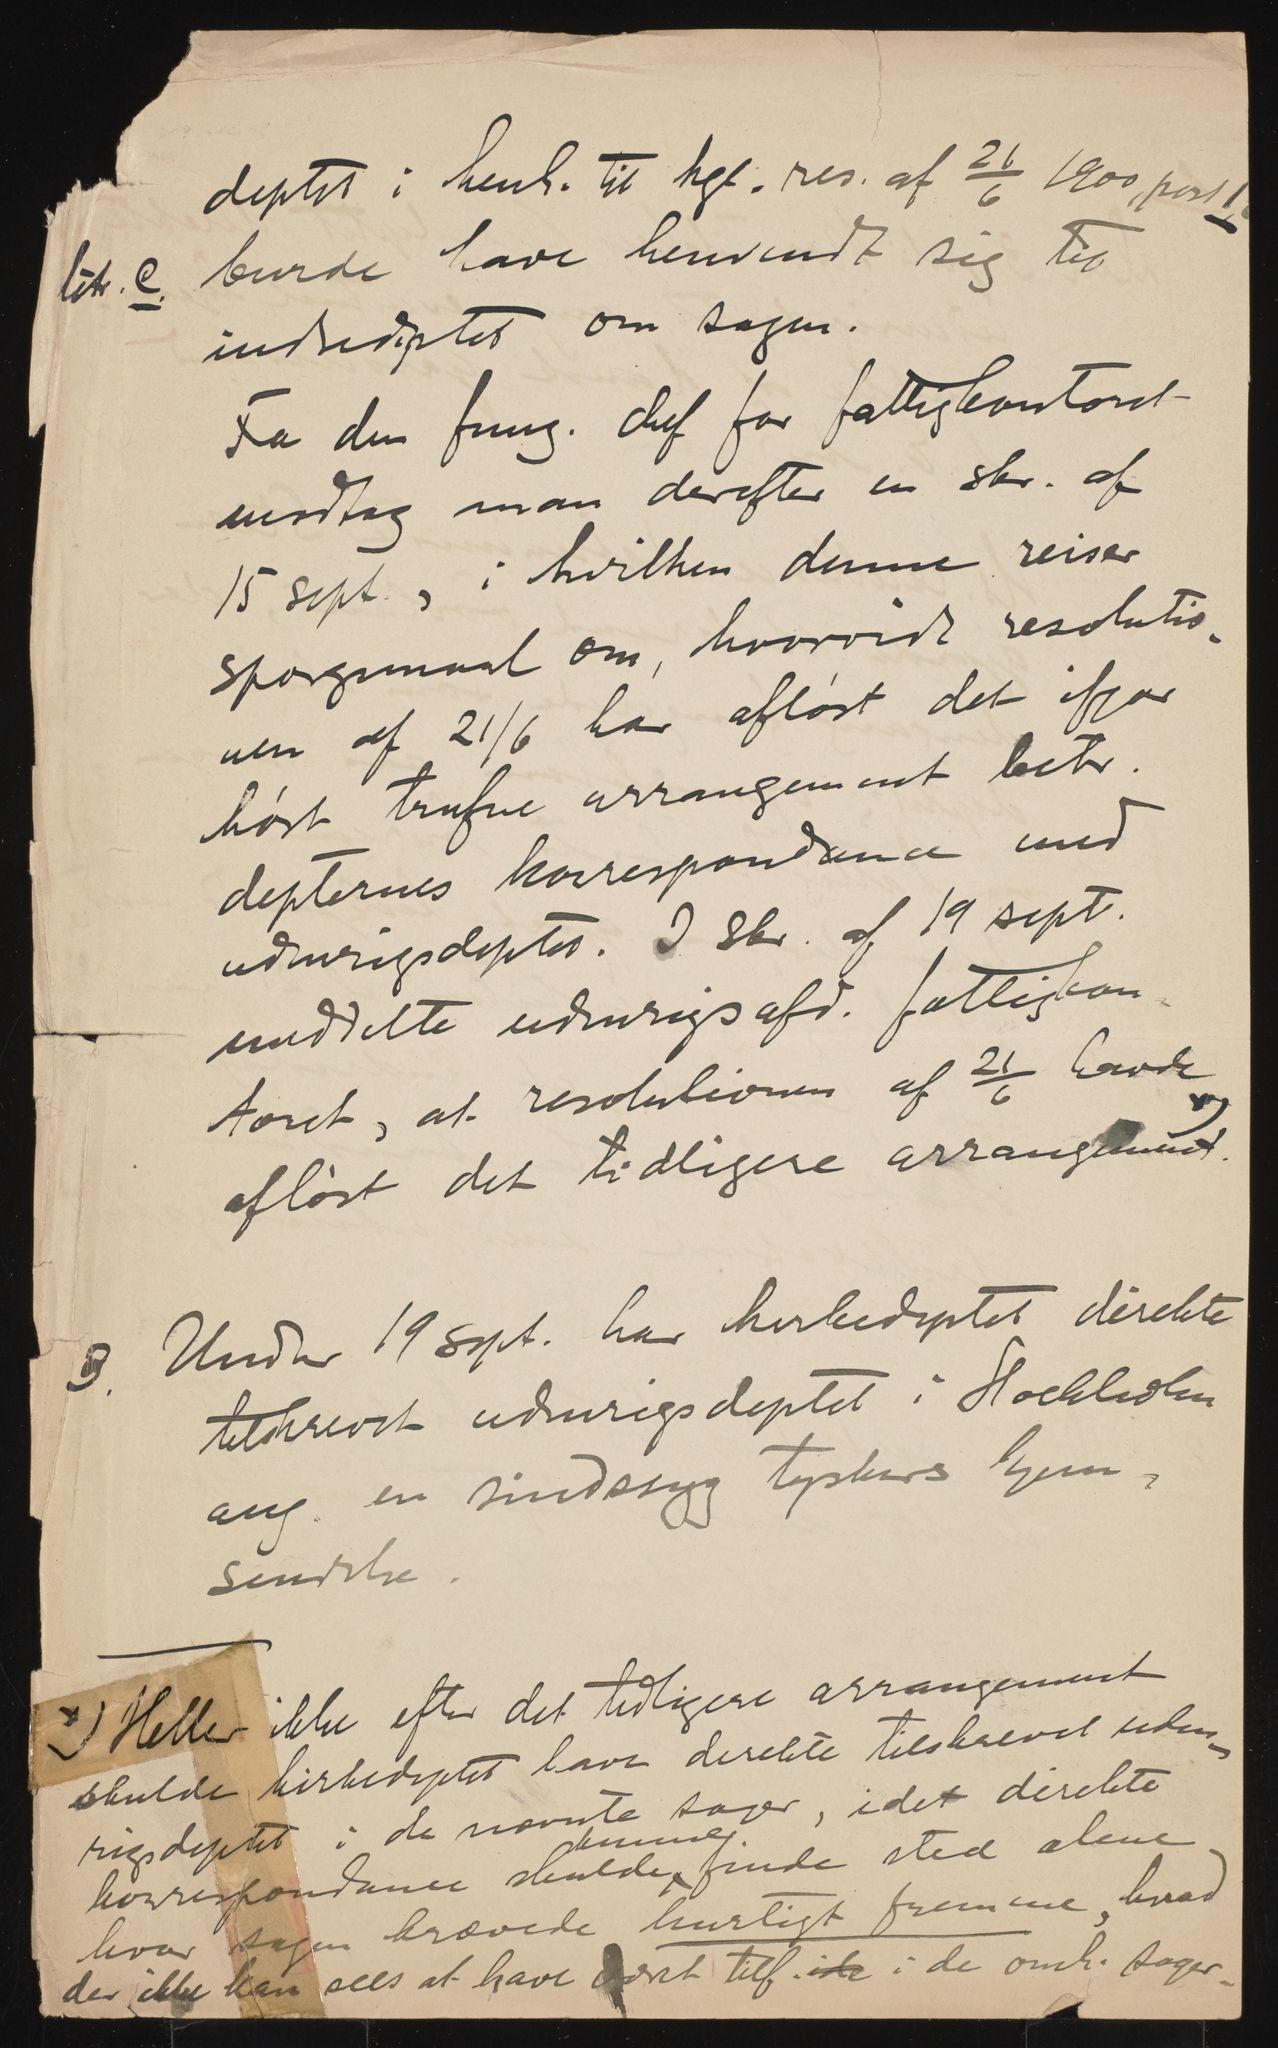 deptet i henh. til kgl. res. af 21/6 1900, post 1
litr. C. burde have henvendt sig til
indredeptet om sagen.
Fra den fung. chef for fattigkontoret
modtog man derefter en skr. af
15 sept., i hvilken denne reiser
spørgsmaal om, hvorvidt resolutio-
nen af 21/6 har afløst det ifjor
høst trufne arrangement betr.
depternes korrespondance med
udenrigsdeptet. I skr. af 19 sept.
meddelte udenrigsafd. fattigkon-
toret, at resolutionen af 21/6 havde
afløst det tidligere arrangement. x)
B. Under 19 sept. har kirkedeptet direkte
tilskrevet udenrigsdeptet i Stockholm
ang. en sindssyg tyskers hjem-
sendelse.
x) Heller ikke efter det tidligere arrangement
skulde kirkedeptet have direkte tilskrevet uden-
rigsdeptet i de nævnte sager, idet direkte
korrespondance skulde finde sted alene
hvor sagen krævede hurtigt fremme, hvad
der ikke kan sees at have været tilf. i de omh. sager.